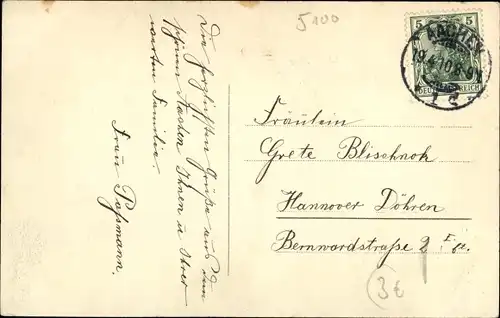 5100
5 5
AACHEN
19.4.10.8-9V.
DEUTSCHES REICH
1 c
Die herzlichsten Grüße aus dem
schönen Aachen Ihnen u Ihrer
werten Familie.
Frau Paßmann.
Fräulein
Grete Blischnok
Hannover Döhren
Bernwardstraße 2 I
3€